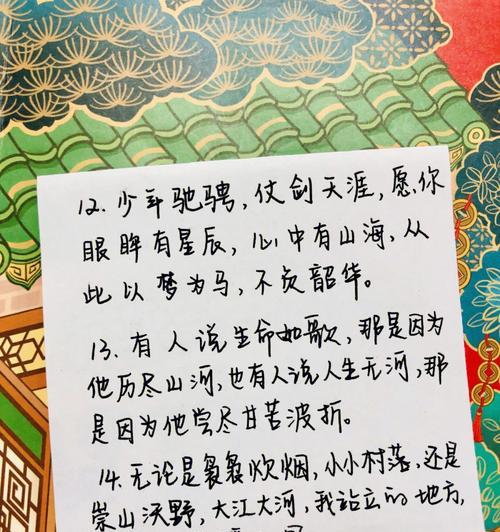 12. 少年驰骋，仗剑天涯，愿你
眼眸有星辰，心中有山海，从
此以梦为马，不负韶华。
13. 有人说生命如歌，那是因为
他历尽山河，也有人说人生无河，那
是因为他尝尽甘苦波折。
14. 无论是袅袅炊烟，小小村落，还是
崇山沃野，大江大河，我站立的地方，